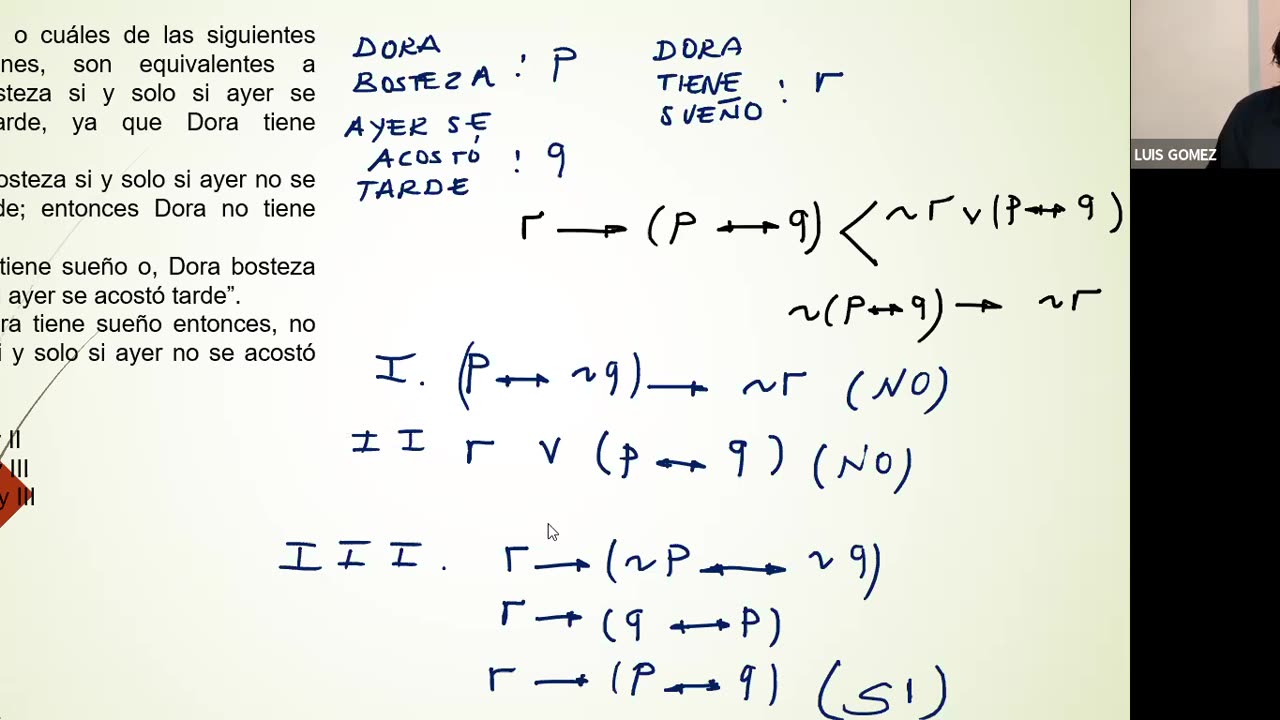 o cuáles de las siguientes
nes, son equivalentes a
steza si y solo si ayer se
arde, ya que Dora tiene
osteza si y solo si ayer no se
de; entonces Dora no tiene
tiene sueño o, Dora bosteza
i ayer se acostó tarde”.
ra tiene sueño entonces, no
i y solo si ayer no se acostó
y II
y III
y III
DORA
BOSTEZA : P
AYER SE
ACOSTÓ : q
TARDE
DORA
TIENE : r
SUEÑO
r → (P ↔ q) < ~r v (P ↔ q)
~(P ↔ q) → ~r
I. (P ↔ ~q) → ~r (NO)
II r v (P ↔ q) (NO)
III. r → (~P ↔ ~q)
r → (q ↔ P)
r → (P ↔ q) (SI)
LUIS GOMEZ